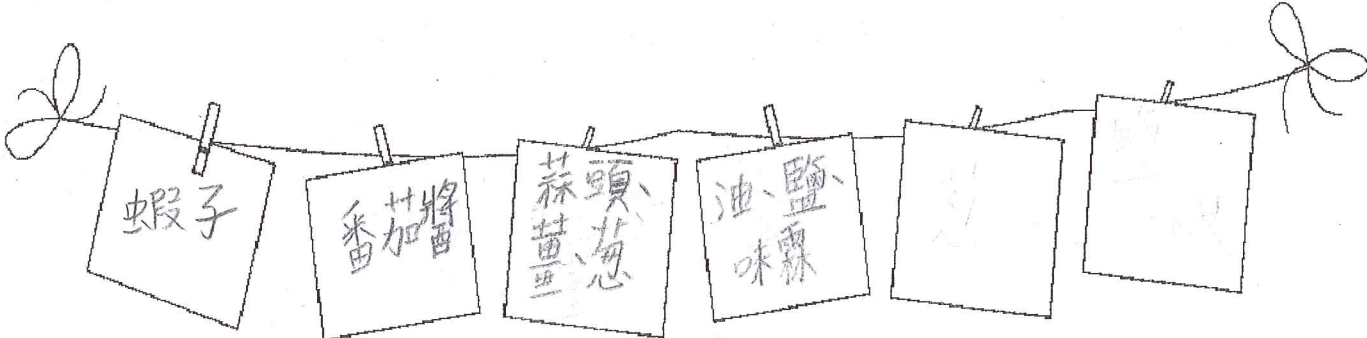 蝦子
番茄醬
蒜頭、
薑、蔥
油、鹽、
味霖